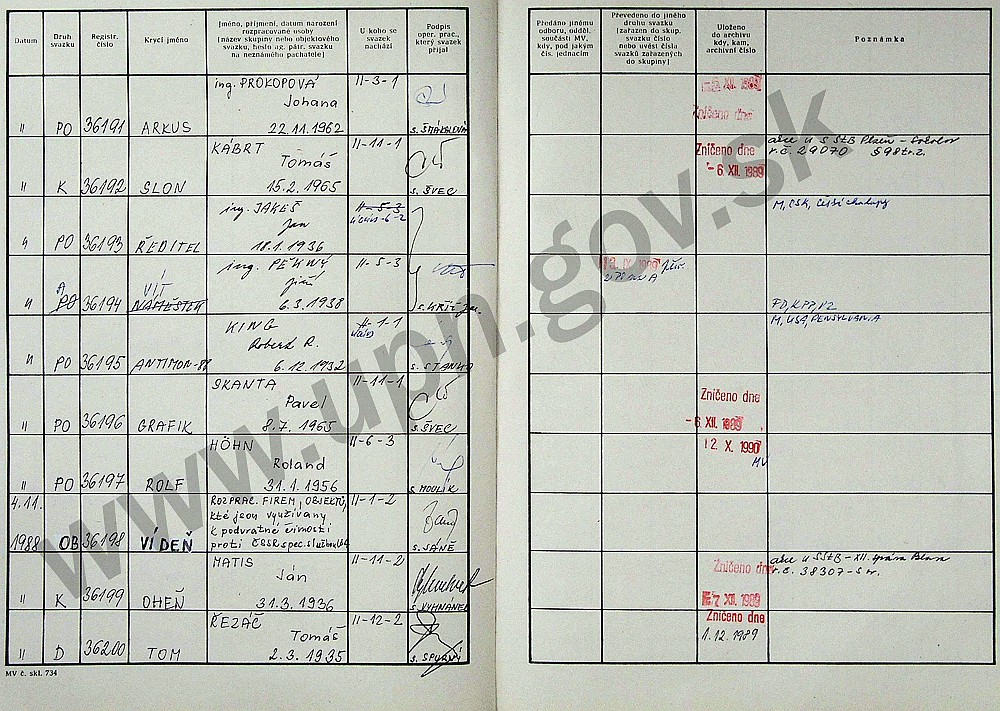 Datum
Druh svazku
Registr. číslo
Krycí jméno
Jméno, příjmení, datum narození
rozpracované osoby
(název skupiny nebo objektového
svazku, heslo ag. pátr. svazku
na neznámého pachatele)
U koho se
svazek
nachází
Podpis
oper. prac.,
který svazek
přijal
Předáno jinému
odboru, odděl.
součásti MV,
kdy, pod jakým
čís. jednacím
Převedeno do jiného
druhu svazku
(zařazen do skup.
svazku číslo
nebo uvést čísla
svazků zařazených
do skupiny)
Uloženo
do archivu
kdy, kam,
archivní číslo
Poznámka
ing. PROKOPOVÁ II-3-1
Johana
" PO 36191 ARKUS 22.11.1962
XII. 1989
Zničeno dne
KÁBRT II-11-1
Tomáš
" K 36192 SLON 15.2.1965 s. ŠVEC
Zničeno dne
-6. XII. 1989
akce u S StB Plzeň - Sokolov
r.č. 29070
ing. JAKEŠ II-5-3
Jan
" PO 36193 ŘEDITEL 18.1.1936
M, ČSK, České chalupy
ing. PĚKNÝ II-5-3
Jiří
A VÍT
" PO 36194 NÁMĚSTEK 6.3.1938
IX. 1989
FD, KPP, VZ
KING II-1-1
Robert R.
" PO 36195 ANTIMON-88 6.12.1932
M, USA, PENSYLVANIA
SKANTA II-11-1
Pavel
" PO 36196 GRAFIK 8.7.1965 s. ŠVEC
Zničeno dne
-6. XII. 1989
HÖHN II-6-3
Roland
" PO 36197 ROLF 31.1.1956 s. MOULÍK
12. X. 1990
MV
4.11. ROZPRAC. FIREM, OBJEKTŮ, II-1-2
kté jsou využívány
k podvratné činnosti
1988 OB 36198 VÍDEŇ proti ČSSR spec. službou USA s. JÁNĚ
MATIS II-11-2
Ján
" K 36199 OHEŇ 31.3.1936 s. VYHNÁNEK
Zničeno dne
7. XII. 1989
akce u SStB - XII. správa
r.č. 38307
ŘEZÁČ II-12-2
Tomáš
" D 36200 TOM 2.3.1935 s. SPURNÝ
Zničeno dne
1.12.1989
MV č. skl. 734
www.upn.gov.sk